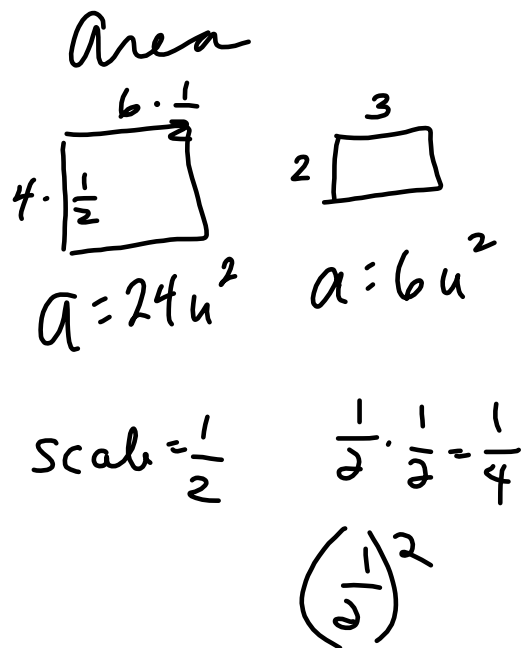 area
6 · 1/2
3
4 · 1/2
2
a = 24u²
a = 6u²
scale = 1/2
1/2 · 1/2 = 1/4
(1/2)²